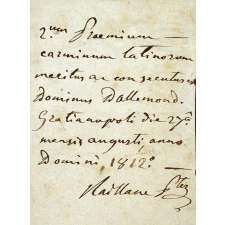 2.um Praemium —
carminum latinorum
meritus ac consecutus est
Dominus Dallemond.
Gratianopoli die 27ª
mensis augusti, anno
Domini, 1812.° —